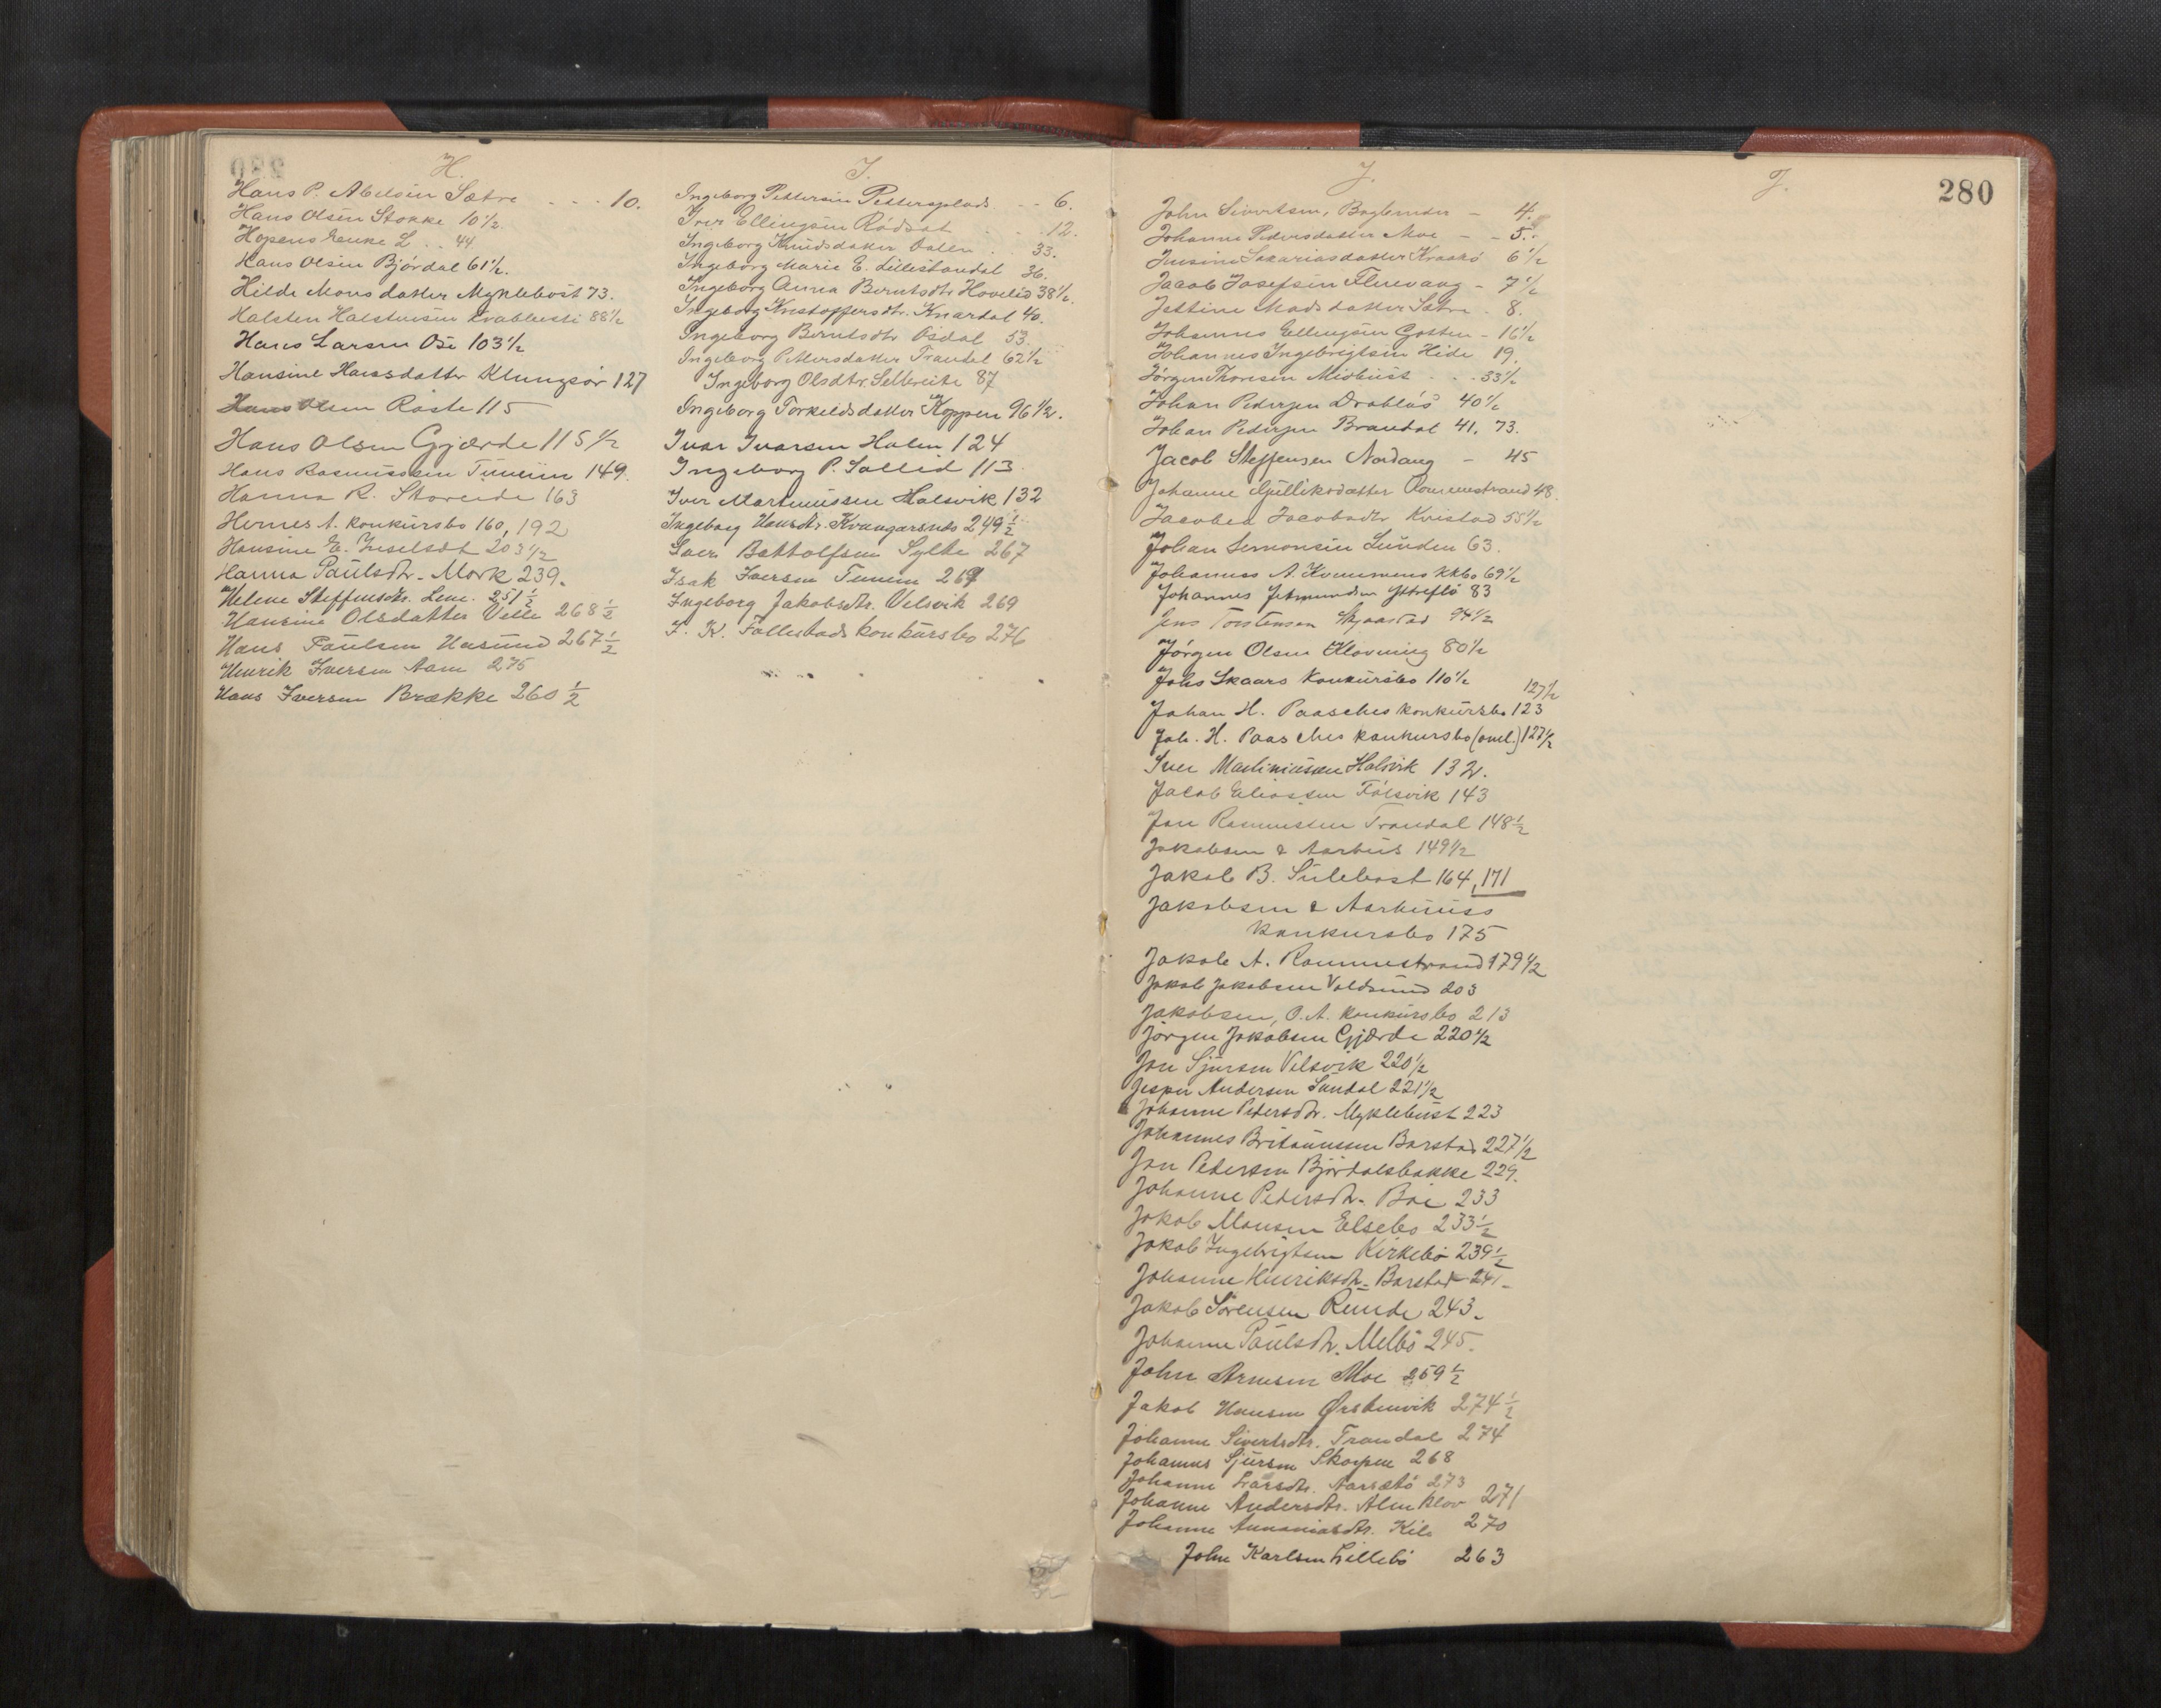 H.
Hans P. Abelsen Sætre - - - 10.
Hans Olsen Stokke 10 1/2.
Hopens Enke L . . 44.
Hans Olsen Bjørdal 61 1/2.
Hilde Monsdatter Myklebost 73.
Halsten Halstensen 88 1/2
Hans Larsen Ose 103 1/2
Hansine Hansdatter Klungsør 127
Hans Olsen Raste 115
Hans Olsen Gjærde 115 1/2
Hans Rasmussen 149.
Hanna R. Storeide 163
Hernes A. konkursbo 160, 192
Hansine E. 203 1/2
Hanna Paulsdtr. Mork 239.
Helene Steffensdtr. Lene. 251 1/2
Hansine Olsdatter Velle 268 1/2
Hans Paulsen Hasund 267 1/2
Henrik Iversen Aam 275
Hans Iversen Brække 260 1/2
I.
Ingeborg Pettersen Pettersplads - - 6.
Iver Ellingsen Rødset . . . 12.
Ingeborg Knudsdatter Dalen . . 33.
Ingeborg Marie E. Lillestandal 36.
Ingeborg Anna Berntsdtr Hovlid 38 1/2.
Ingeborg Kristoffersdtr. Knardal 40.
Ingeborg Berntsdtr Osdal 53.
Ingeborg Pettersdatter Trandal 62 1/2
Ingeborg Olsdtr. Selbreite 87
Ingeborg Torkeldsdatter Koppen 96 1/2.
Ivar Ivarsen Holen 124
Ingeborg P. Sollid 113
Iver Martinussen Halsvik 132
Ingeborg Hansdtr. Kvangarsnes 249 1/2
Iver Bottolfsen Sylte 267
Isak Iversen 269
Ingeborg Jakobsdtr. Velsvik 269
I. K. Follestads konkursbo 276
J.
J.
280
John Sivertsen, - 4.
Johanne Pedersdatter Moe - - 5.
Jensine Sakariasdatter 6 1/2
Jacob Josefsen Flusvang - 7 1/2
Jettine Madsdatter Sætre . 8.
Johannes Ellingsen Gjerten - 16 1/2
Johannes Ingebrigtsen Hide 19.
Jørgen Thoresen Midbust . . . 33 1/2
Johan Pedersen Drabløs 40 1/2
Johan Pedersen Brandal 41. 73.
Jacob Steffensen Nordang - 45
Johanne Gulliksdatter Rommestrand 48.
Jacobea Jacobsdtr Kvistad 55 1/2
Johan Simonsen Lunden 63.
Johannes A. kkbo 69 1/2
Johannes Jetmundsen Ytreflø 83
Jens Torstensen Skjaastad 94 1/2
Jørgen Olsen Klovning 80 1/2
Johs Skaars konkursbo 110 1/2
127 1/2
Johan H. Paasches konkursbo 123
Joh. H. Paasches konkursbo (omel.) 127 1/2
Iver Martinussen Halsvik 132.
Jacob Eliassen Følsvik 143
Jon Rasmussen Trandal 148 1/2
Jakobsen & Aarhus 149 1/2
Jakob B. Sulebost 164, 171
Jakobsen & Aarhuus
konkursbo 175
Jakob A. Rommestrand 179 1/2
Jakob Jakobsen Voldsund 203
Jakobsen, O. A. konkursbo 213
Jørgen Jakobsen Gjærde 220 1/2
Jon Sjursen Velsvik 220 1/2
Jesper Andersen Sundal 221 1/2
Johanne Pedersdtr. Myklebust 223
Johannes Britanusen Barstad 227 1/2
Jon Pedersen Bjørdalsbakke 229.
Johanne Pedersdtr. Boe 233
Jakob Monsen Elsebo 233 1/2
Jakob Ingebrigtsen Kirkebø 239 1/2
Johanne Henriksdtr. Barstad 241.
Jakob Sørensen Runde 243.
Johanne Paulsdtr. Melbø 245.
John Arnesen Moe 259 1/2
Jakob Hansen Ørstenvik 274 1/2
Johanne Sivertsdtr. Trandal 274
Johannes Sjursen Skorpen 268
Johanne Larsdtr. Aarsætø 273
Johanne Andersdtr. Almklov 271
Johanne Annaniasdtr. Kile 270
John Karlsen Lillebø 263